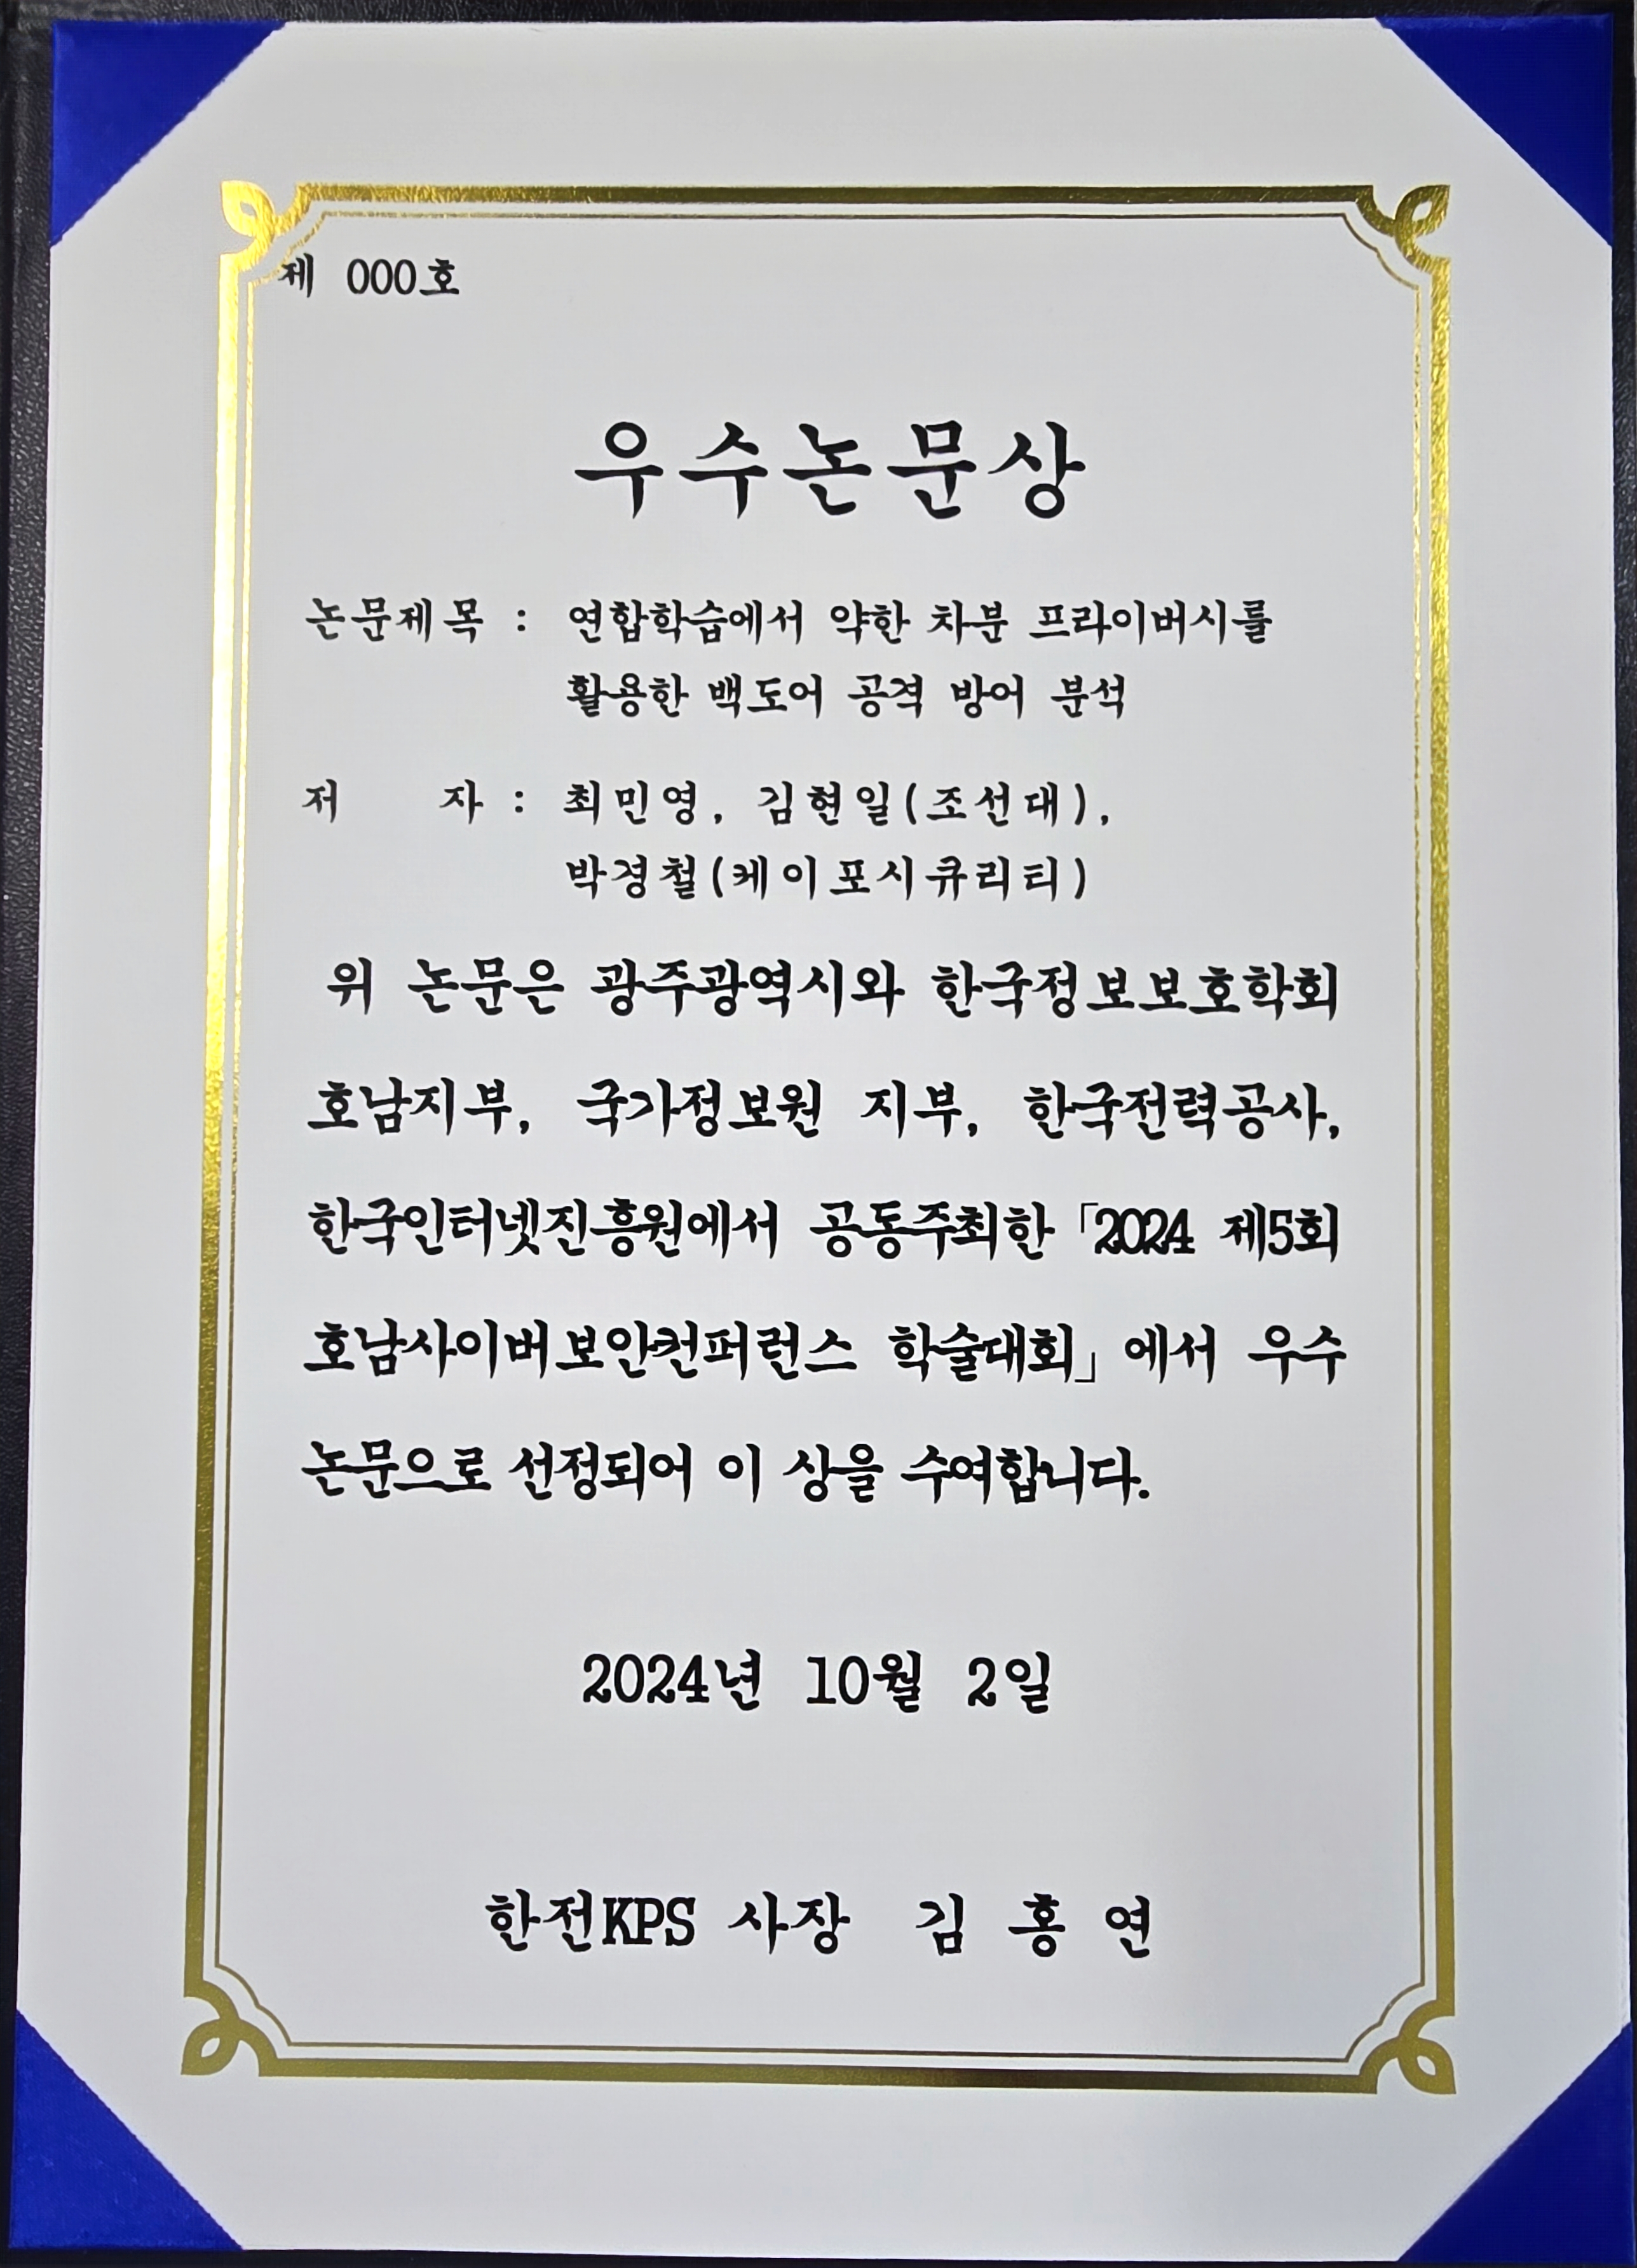 제 000호
우수논문상
논문제목 : 연합학습에서 약한 차분 프라이버시를
활용한 백도어 공격 방어 분석
저 자 : 최민영, 김현일(조선대),
박경철(케이포시큐리티)
위 논문은 광주광역시와 한국정보보호학회
호남지부, 국가정보원 지부, 한국전력공사,
한국인터넷진흥원에서 공동주최한 「2024 제5회
호남사이버보안컨퍼런스 학술대회」에서 우수
논문으로 선정되어 이 상을 수여합니다.
2024년 10월 2일
한전KPS 사장 김 홍 연